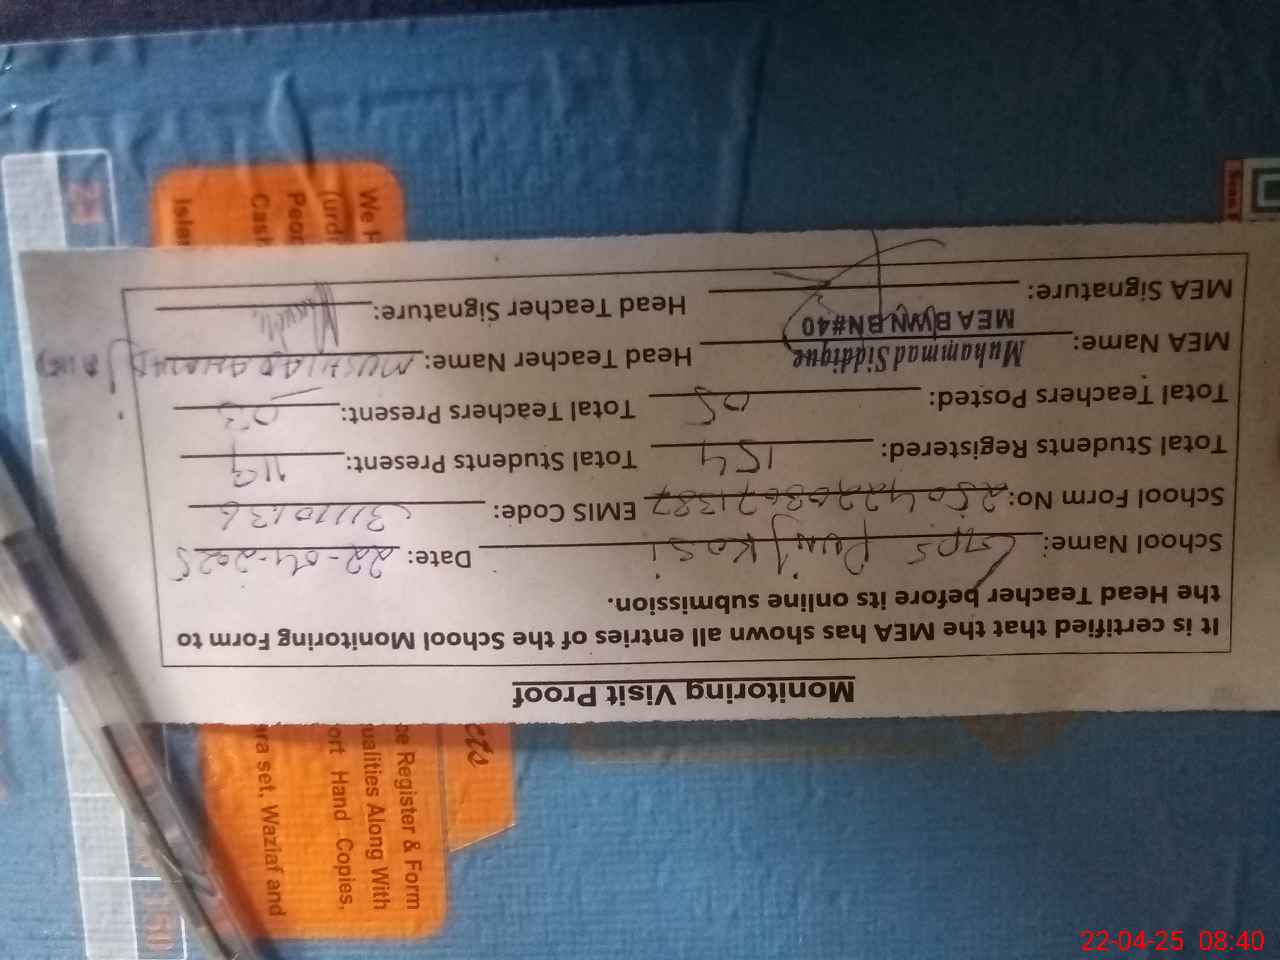 Monitoring Visit Proof
It is certified that the MEA has shown all entries of the School Monitoring Form to
the Head Teacher before its online submission.
School Name: GPS Punj Kosi Date: 22-04-2025
School Form No: 25042203671387 EMIS Code: 31110136
Total Students Registered: 154 Total Students Present: 119
Total Teachers Posted: 05 Total Teachers Present: 03
MEA Name: Muhammad Siddique Head Teacher Name: MUSHTAQ AHMAD
MEA BWN BN#40
MEA Signature: Head Teacher Signature:
We
(urd
Peop
Cash
Isla
cts
e Register & Form
ualities Along With
ort Hand Copies,
ara set, Waziaf and
150
22-04-25 08:40